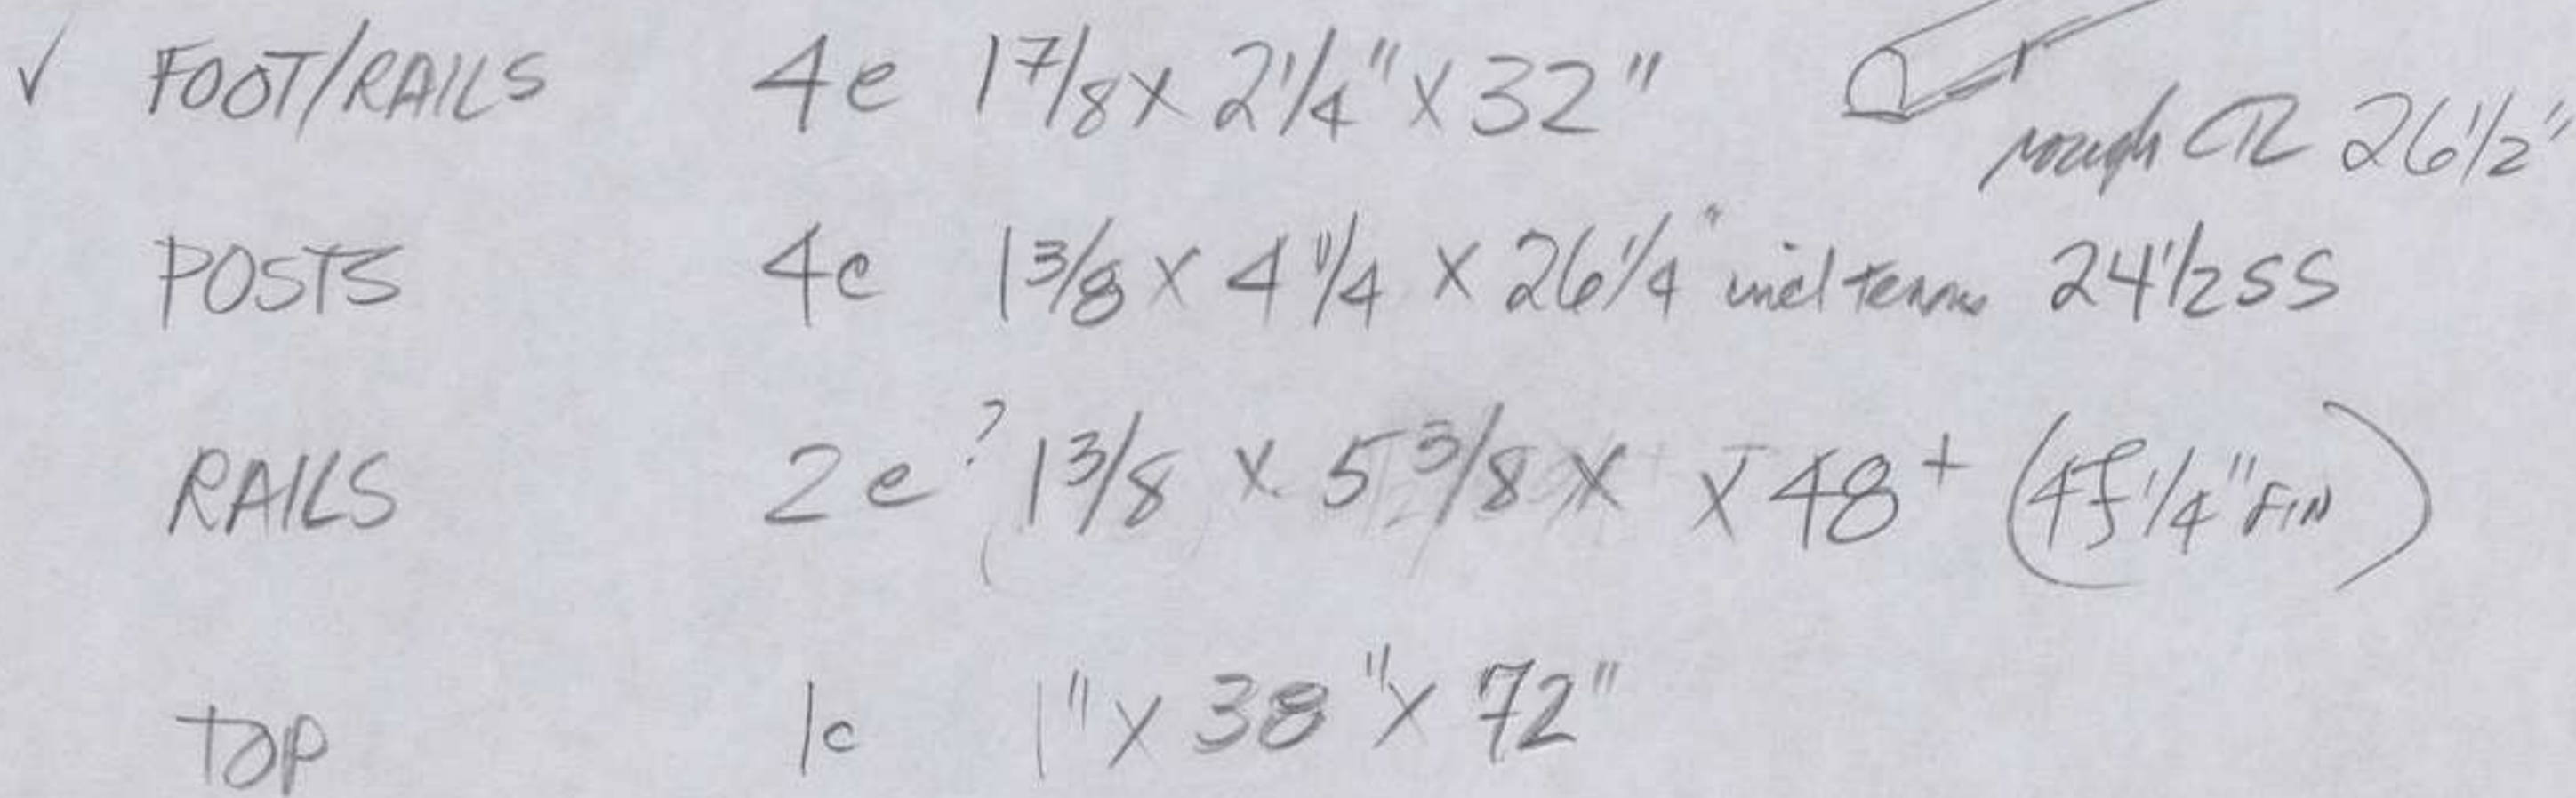 ✓ FOOT/RAILS 4e 1 7/8 x 2 1/4" x 32"
rough 26 1/2"
POSTS 4e 1 3/8 x 4 1/4 x 26 1/4" incl tenons 24 1/2 SS
RAILS 2e ? 1 3/8 x 5 3/8 x x 48+ ( 1/4" FIN )
TOP 1e 1" x 38" x 72"